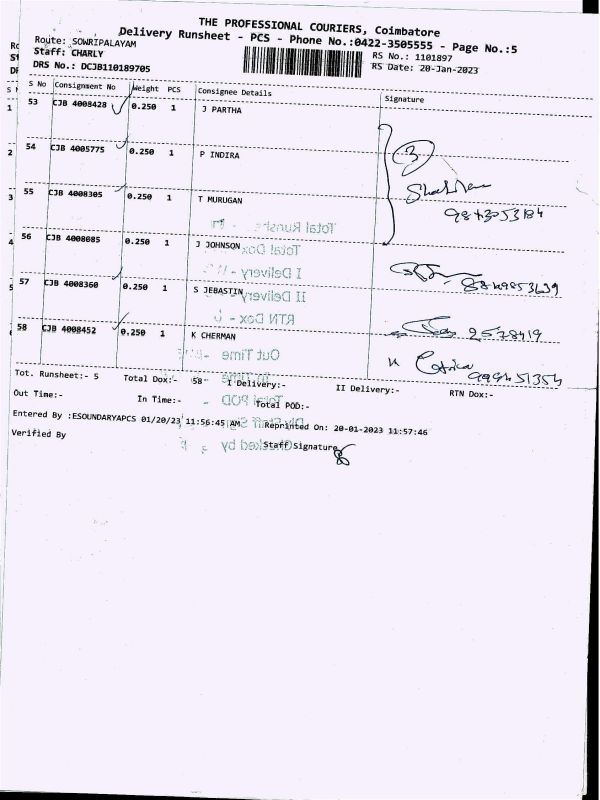 THE PROFESSIONAL COURIERS, Coimbatore
Delivery Runsheet - PCS - Phone No.:0422-3505555 - Page No.:5
Route: SOWRIPALAYAM
Staff: CHARLY
RS No.: 1101897
DRS No.: DCJB110189705
RS Date: 20-Jan-2023
S No Consignment No Weight PCS Consignee Details Signature
53 CJB 4008428 0.250 1 J PARTHA
54 CJB 4005775 0.250 1 P INDIRA
3
55 CJB 4008305 0.250 1 T MURUGAN
Total Runshe
56 CJB 4008085 0.250 1 J JOHNSON
Total Dox
I Delivery -
57 CJB 4008360 0.250 1 S JEBASTIN
II Delivery -
RTN Dox -
58 CJB 4008452 0.250 1 K CHERMAN 2578419
Out Time -
Tot. Runsheet:- 5 Total Dox:- 58- I Delivery:- II Delivery:- RTN Dox:-
Out Time:- In Time:- Total POD:-
Total POD -
Entered By :ESOUNDARYAPCS 01/20/23 11:56:45 AM Reprinted On: 20-01-2023 11:57:46
Verified By Staff Signature
Checked by